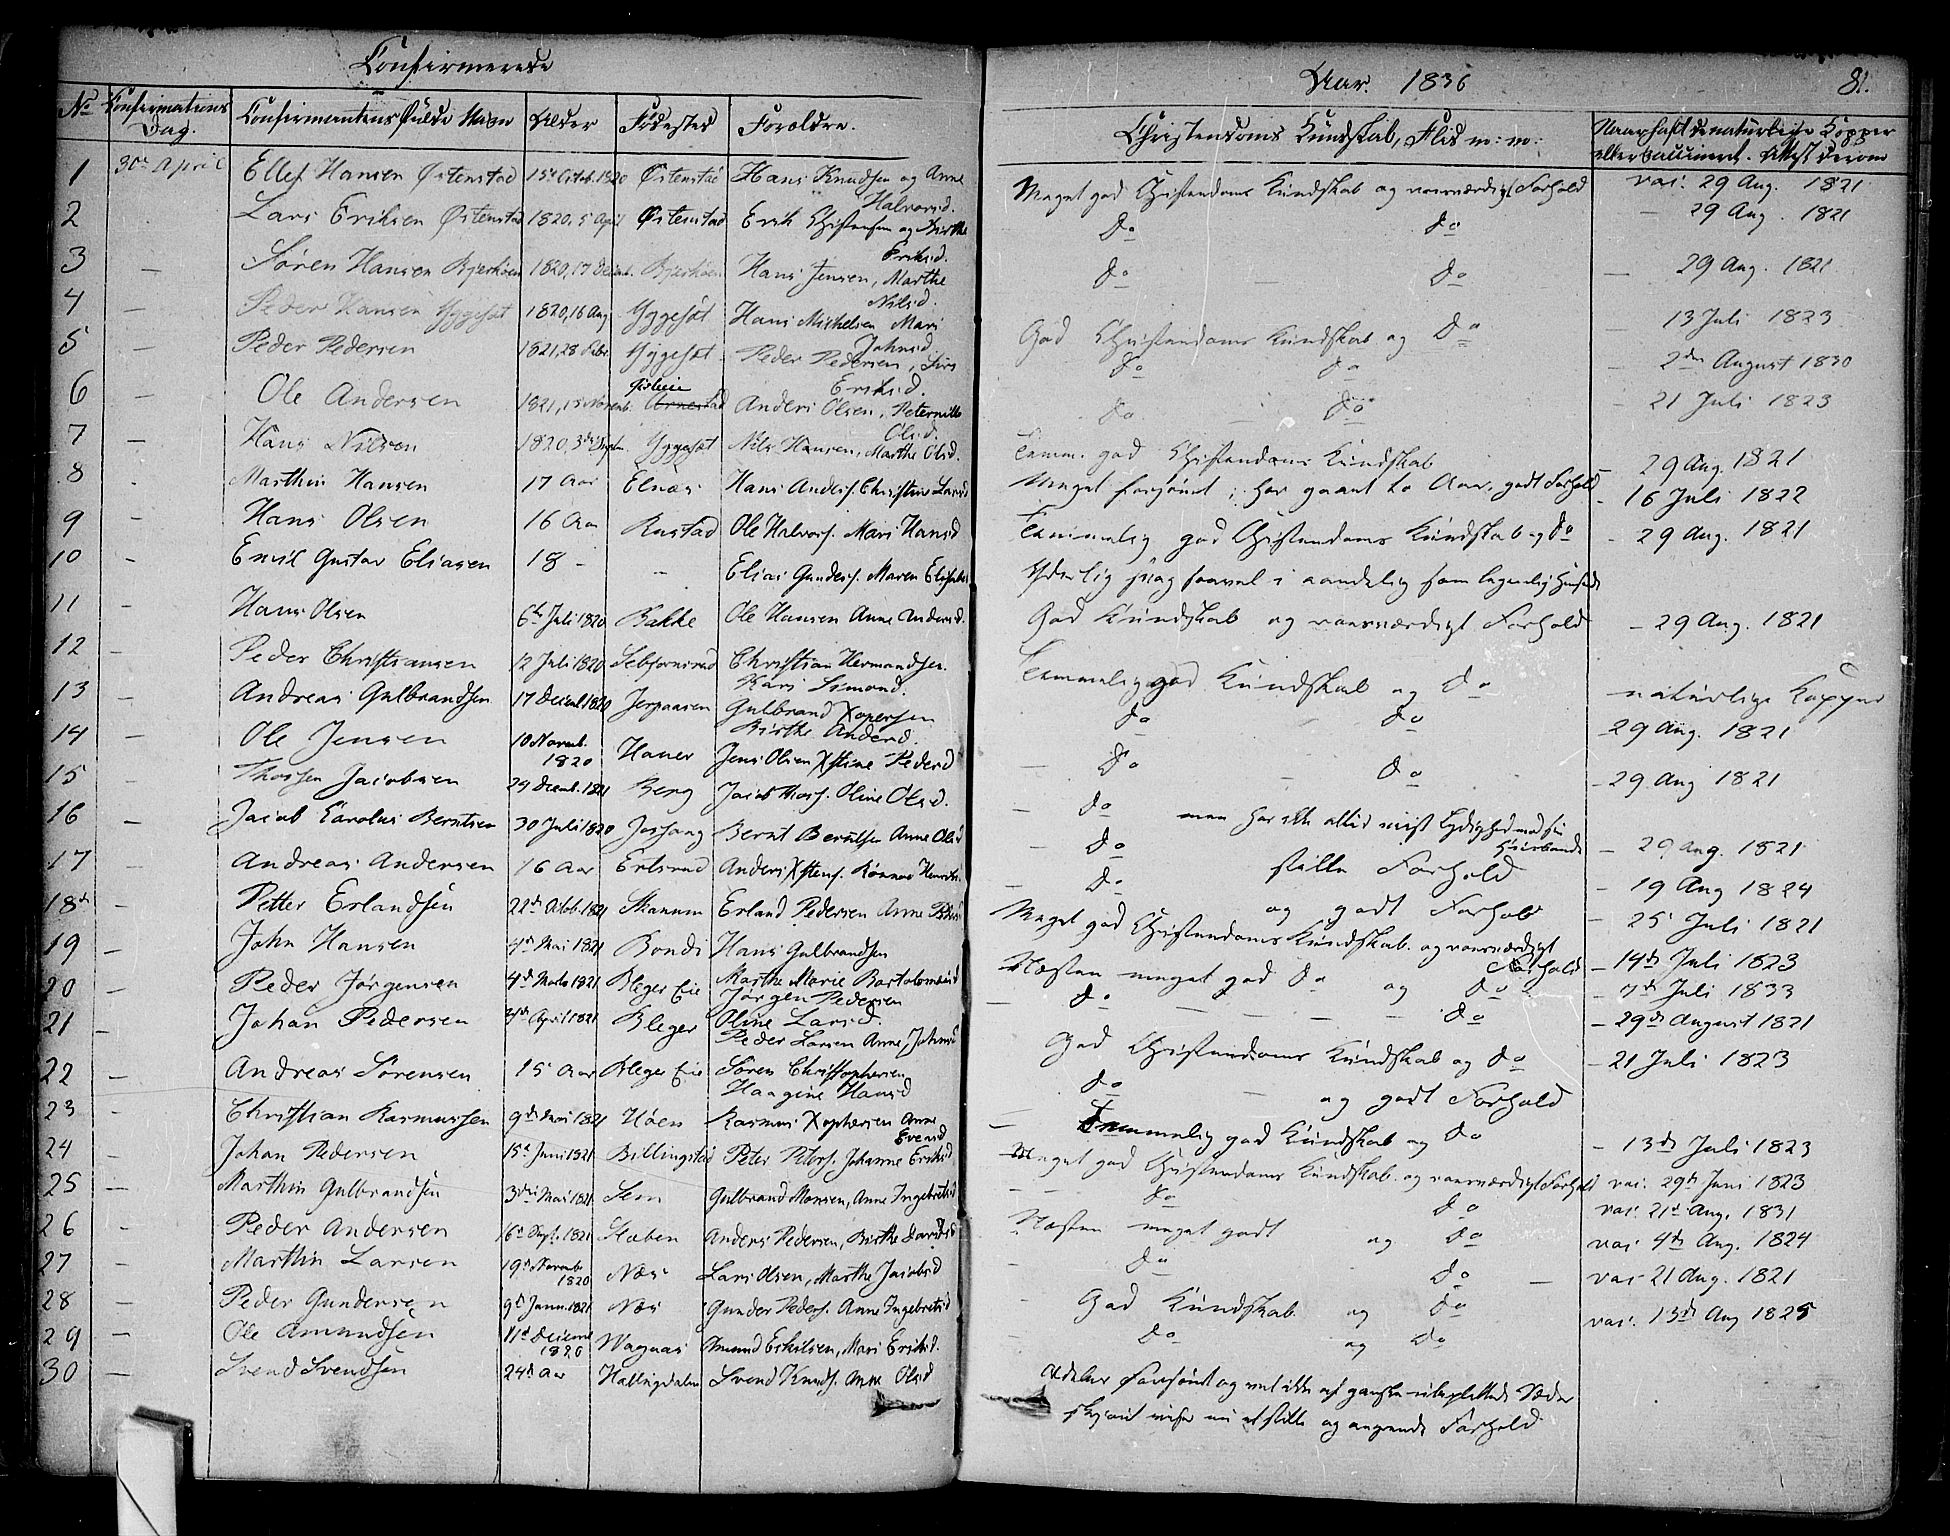 Confirmerede
Aar 1836
81.
No Confirmations Dag. Confirmantens Fulde Navn Alder Fødested Forældre.
Christendoms Kundskab, Flid m: m:
Naar havt de naturlige Kopper
eller vaccineret. Attest derom
1 30te April Ellef Hansen Østenstad Østenstad Hans Knudsen og Anne Halvorsd. Meget god Christendoms Kundskab og roesværdigt Forhold vac. 29 Aug. 1821
2 Lars Eriksen Østenstad 1820, 5 April Østenstad Erik Christensen og Birthe Eriksd. do do — 29 Aug. 1821
3 — Søren Hansen Bjerkøen 1820, 17 Decemb. Bjerkøen Hans Jensen, Marthe Nilsd. do do — 29 Aug. 1821
4 — Peder Hansen Yggesøt 1820, 16 Aug Yggesøt Hans Michelsen Mari Johnsd. God Christendoms Kundskab og do — 13 Juli 1823
5 — Peder Pedersen 1821, 28 Febr Yggesøt Peder Pedersen, Siri Eriksd. do do — 2den August 1830
6 — Ole Andersen Anders Olsen, Peternille Olsd. do — do — 21 Juli 1823
7 — Hans Nilsen 1820, 3die Septr. Yggesøt Nils Hansen, Marthe Olsd. Temm. god Christendoms Kundskab — 29 Aug. 1821
8 - Marthin Hansen 17 Aar Elnæs Hans Anders. Christine Larsd Meget forsømt; har gaaet to Aar, godt Forhold — 16 Juli 1822
9 - Hans Olsen 16 Aar Rustad Ole Halvors. Mari Hansd Temmelig god Christendoms Kundskab og do - 29 Aug. 1821
10 - Emil Gustav Eliasen 18 - - Elias Gunders. Maren Elisabet Yderlig svag saavel i aandelig som legemlig Henseende
11 — Hans Olsen 6te Juli 1820 Bakke Ole Hansen Anne Andersd. God Kundskab og roesværdigt Forhold — 29 Aug. 1821
12 — Peder Christiansen 12 Juli 1820 Christian Hermandsen. Kari Simond. Temmelig god Kundskab og do naturlige Kopper
13 — Andreas Gulbrandsen 17 Decemb 1820 Jerpaasen Gulbrand Xopersen Birthe Anderd. do do 29 Aug. 1821
14 — Ole Jensen 10 Novemb. 1820 Haner Jens Olsen Xstine Pedersd — do — do — 29 Aug 1821
15 — Thorsen Jacobsen 24 Decemb. 1821 Berg Jacob Thors. Oline Olsd. — do men har ikke altid viist Lydighed mod sin Huusbonde
16 — Jacob Carolus Berntsen 30 Juli 1820 Jossang Bernt Berntsen Anne Olsd — do stille Forhold — 29 Aug. 1821
17 — Andreas Andersen 16 Aar Erlsrud Anders Xstens. — do og godt Forhold — 19 Aug 1824
18de — Petter Erlandsen 22de Octob. 1821 Skanum Erland Pedersen Anne Meget god Christendoms Kundskab og roesværdigt Forhold — 25 Juli 1821
19 — John Hansen 4de Mai 1821 Bondi Hans Gulbrandsen Marthe Marie Bartolomæusd Næsten meget god do og do — 14de Juli 1823
20 — Peder Jørgensen 4de Marts 1821 Bleger Eie Jørgen Pedersen Oline Larsd. — do — — — do — 7de Juli 1833
21 — Johan Pedersen 4de April 1821 Bleger Peder Larsen Anne Johnsd God Christendoms Kundskab og do — 29de August 1821
22 — Andreas Sørensen 15 Aar Bleger Eie Søren Christophersen Haagine Hansd do — og godt Forhold — 21 Juli 1823
23 — Christian Rasmussen 9de Mai 1821 Høen Rasmus Xophersen Anne Evensd — Temmelig god Kundskab og do — 13de Juli 1823
24 — Johan Pedersen 15de Juni 1821 Billingstad Peter Peters. Johanne Eriksd. Meget god Christendoms Kundskab og roesværdigt Forhold vac. 29de Juni 1823
25 — Marthin Gulbrandsen 3die Mai 1821 Sem Gulbrand Monsen, Anne Ingebretsd do do vac: 21de Aug. 1831
26 — Peder Andersen 16de Sept. 1821 Støben Anders Pedersen, Birthe Davidsd Næsten meget godt og do vac 4de Aug. 1824
27 — Marthin Larsen 19de Novembr 1820 Næs Lars Olsen, Marthe Jacobsd - do do — vac 21 Aug. 1821
28 — Peder Gundersen 9de Janu. 1821 Næs Gunder Peders. Anne Ingebretsd God Kundskab og do vac. 13de Aug 1825
29 — Ole Amundsen 11te Decemb 1820 Wagnas Amund Eskilsen, Mari Eriksd. - do og do
30 — Svend Svendsen 24de Aar Hallingdalen Svend Knuds. Anne Olsd og angrende Forhold